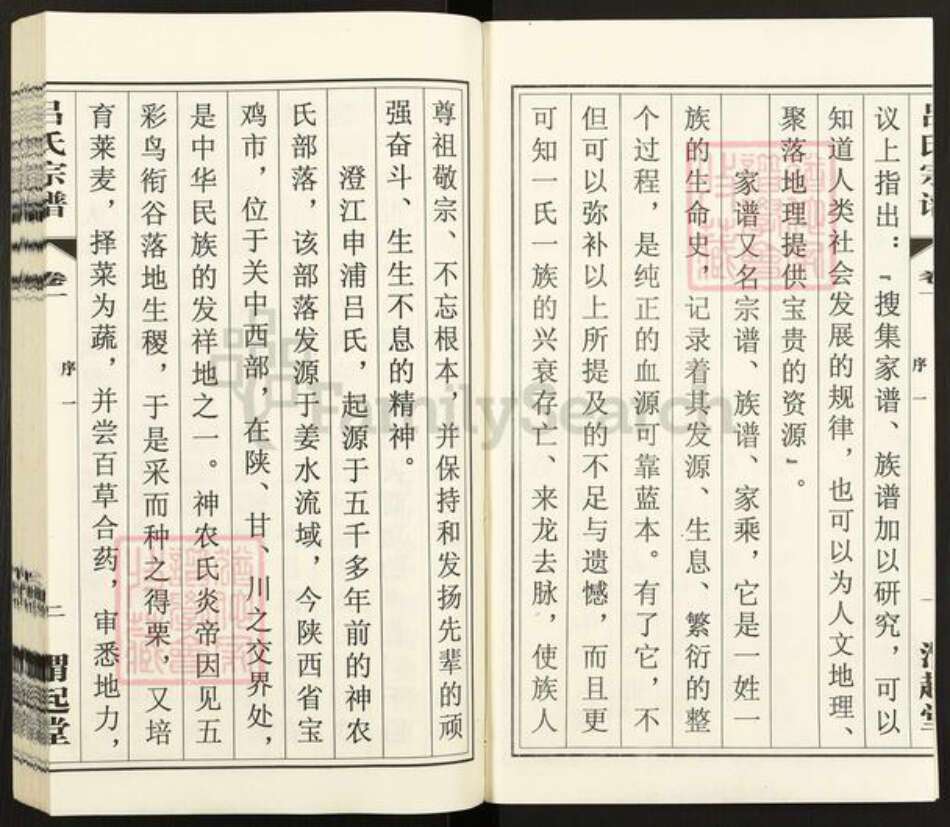 议上指出：“搜集家谱、族谱加以研究，可以
知道人类社会发展的规律，也可以为人文地理、
聚落地理提供宝贵的资源”。
家谱又名宗谱、族谱、家乘，它是一姓一
族的生命史，记录着其发源、生息、繁衍的整
个过程，是纯正的血源可靠蓝本。有了它，不
但可以弥补以上所提及的不足与遗憾，而且更
可知一氏一族的兴衰存亡、来龙去脉，使族人
尊祖敬宗、不忘根本，并保持和发扬先辈的顽
强奋斗、生生不息的精神。
澄江申浦吕氏，起源于五千多年前的神农
氏部落，该部落发源于姜水流域，今陕西省宝
鸡市，位于关中西部，在陕、甘、川之交界处，
是中华民族的发祥地之一。神农氏炎帝因见五
彩鸟衔谷落地生稷，于是采而种之得栗，又培
育莱麦，择菜为蔬，并尝百草合药，审悉地力，
吕氏宗谱
卷一
序一
二
渭起堂
吕氏宗谱
卷一
序一
一
渭起堂
FamilySearch